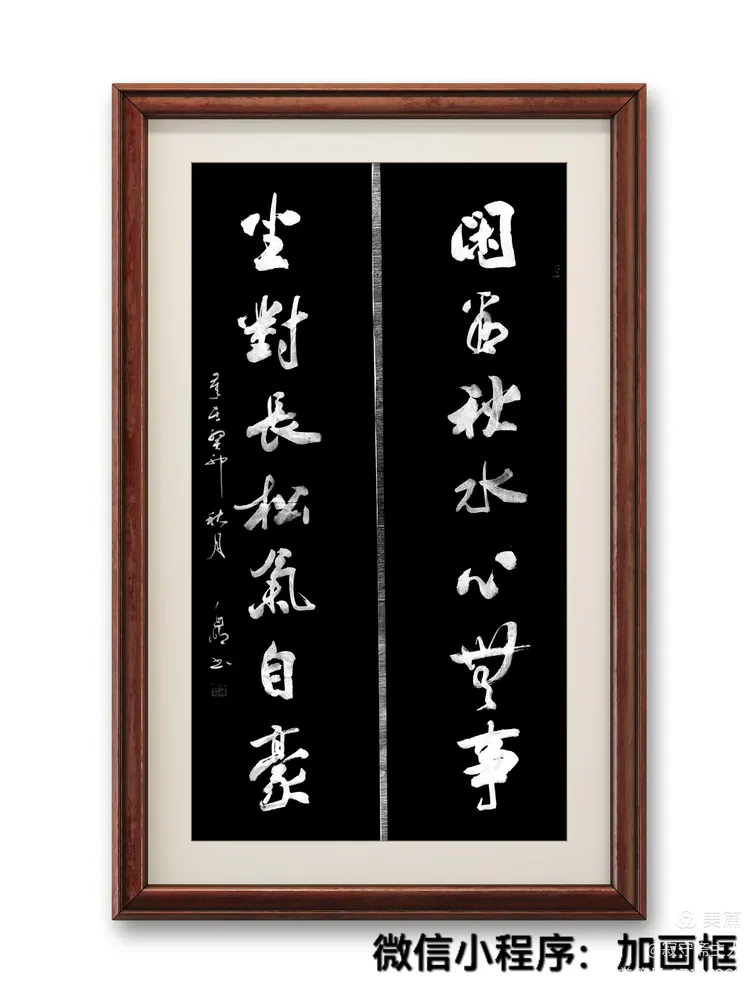 閑看秋水心無事
坐對長松氣自豪
癸卯秋月
書
美篇
微信小程序：加画框